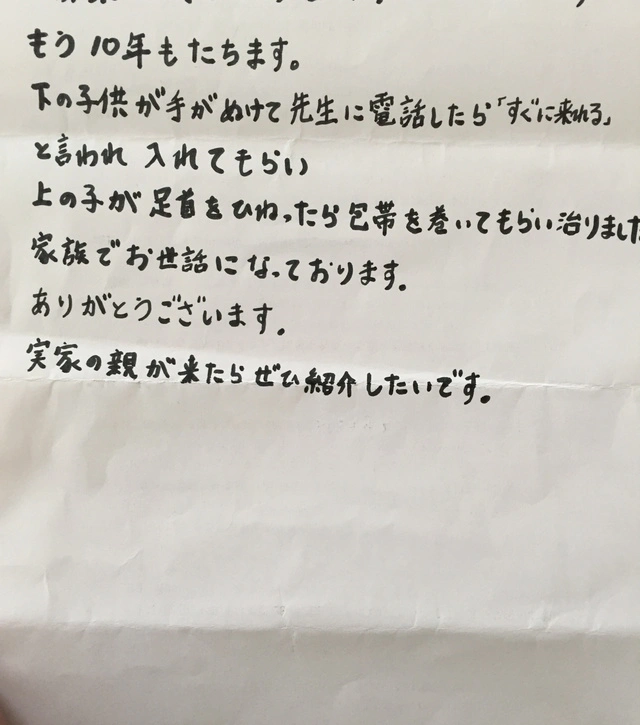 もう10年もたちます。
下の子供が手がぬけて先生に電話したら「すぐに来れる」
と言われ 入れてもらい
上の子が足首をひねったら包帯を巻いてもらい治りました
家族でお世話になっております。
ありがとうございます。
実家の親が来たらぜひ紹介したいです。